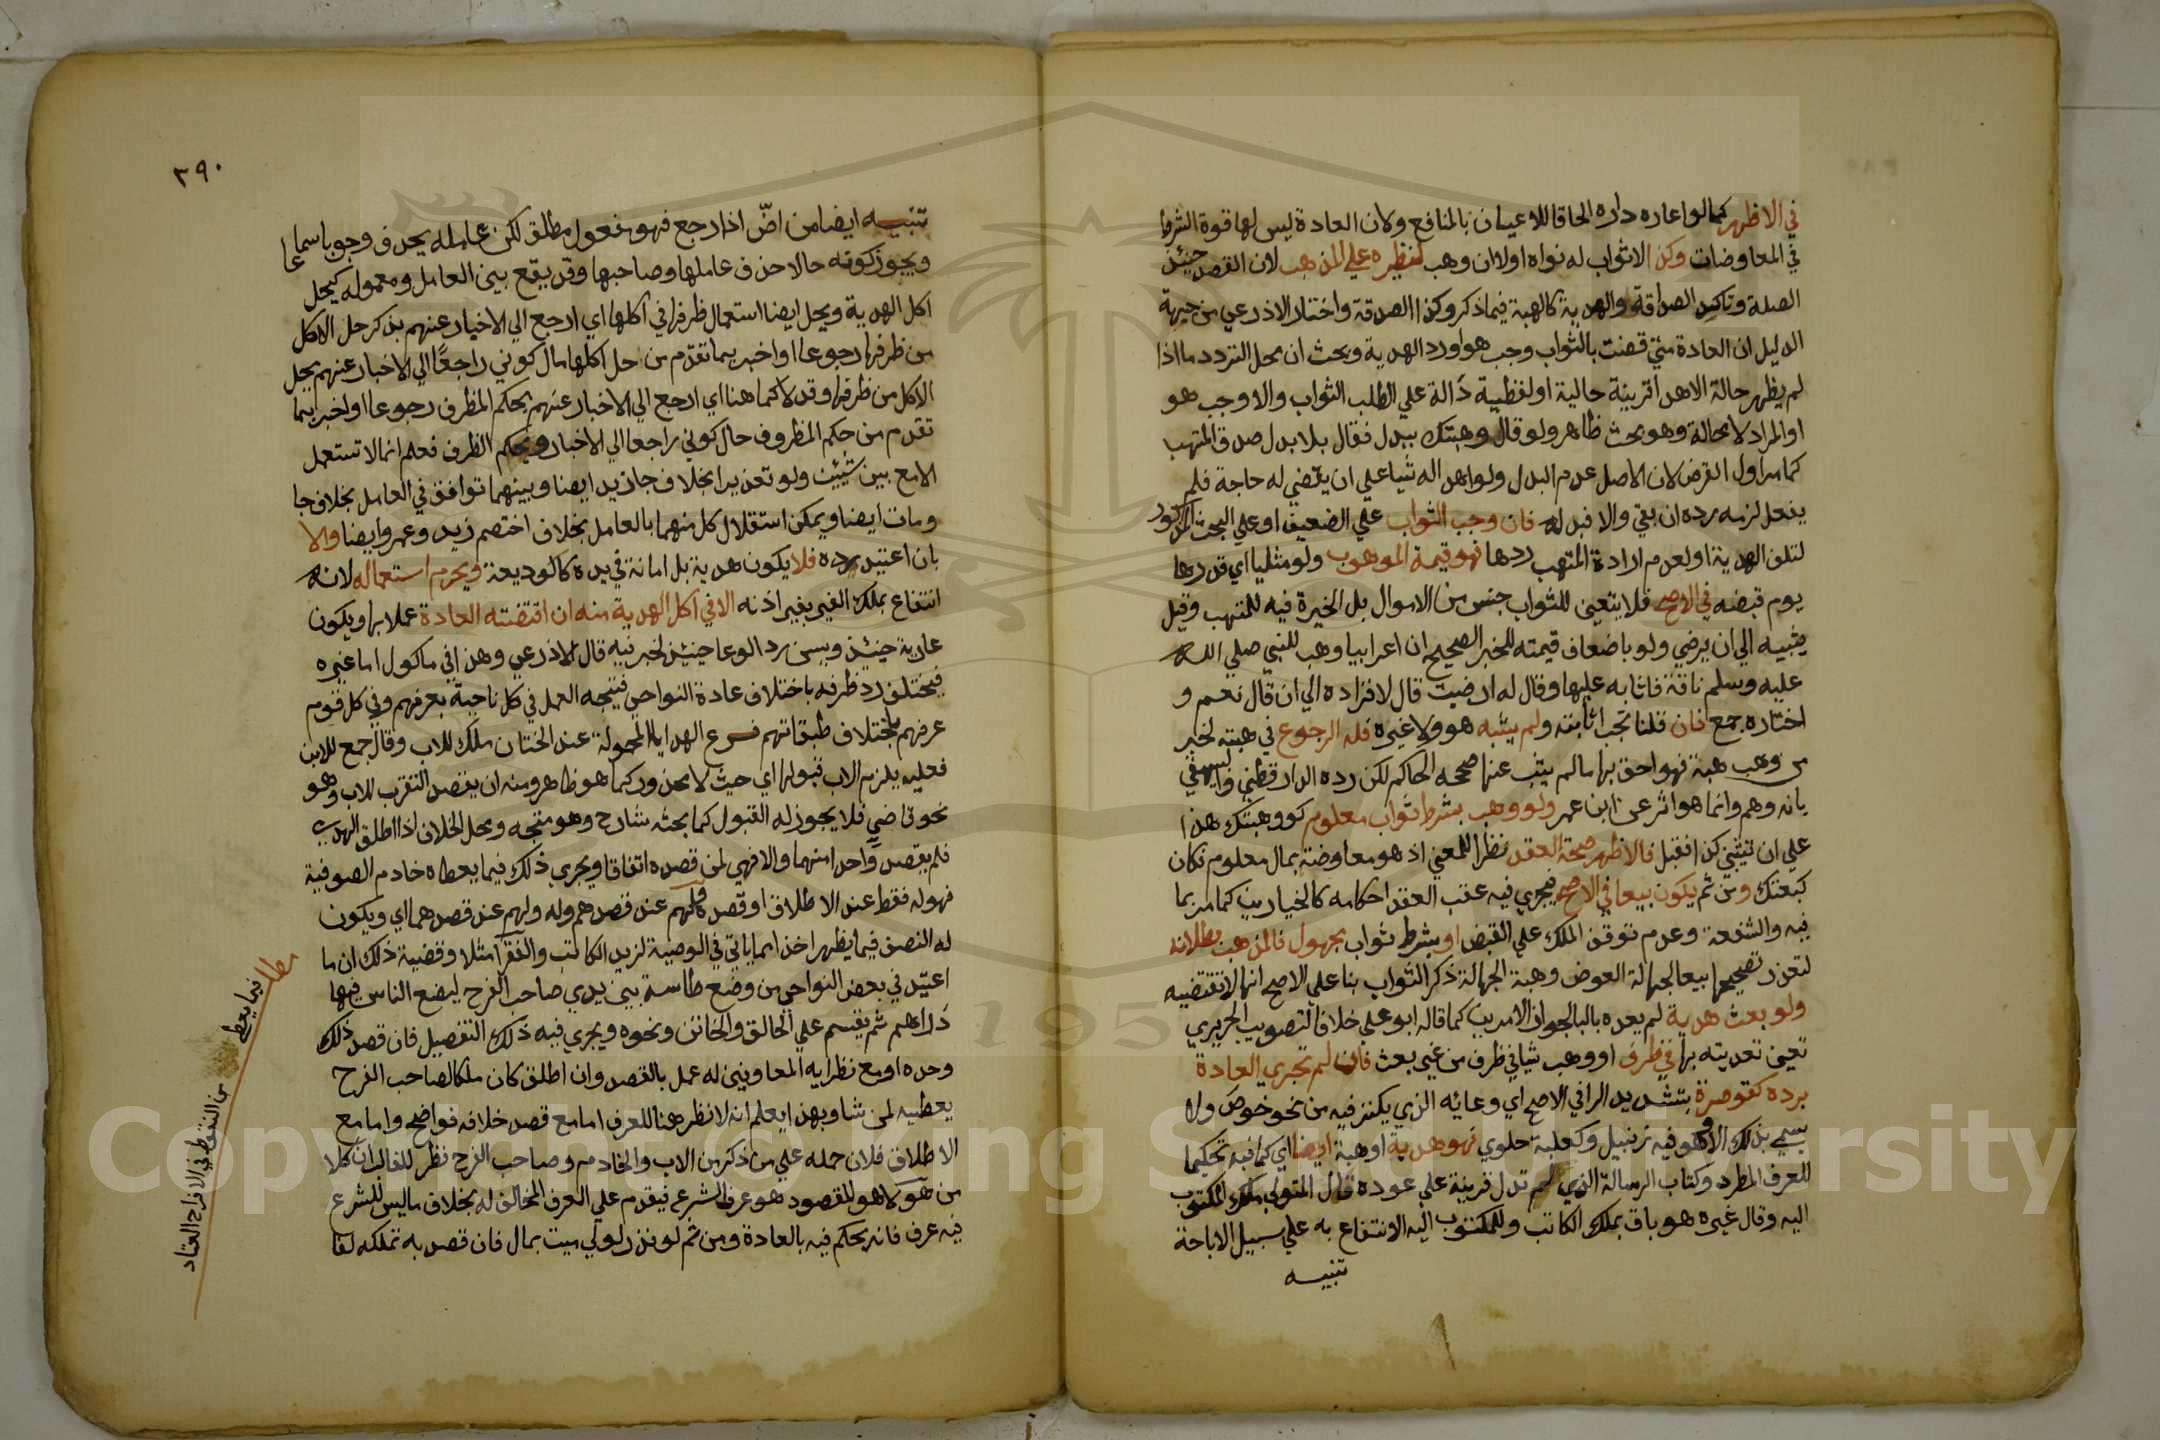 في الاظهر كما لو اعاره داره الحاقا للاعيان بالمنافع ولان العادة ليس لها قوة الشرط
في المعاوضات وكذا لا ثواب له نواه او لا ان وهب لنظيره علي المذهب لان القصد حينئذ
الصلة وتاكيد الصداقة والهدية كالهبة فيما ذكر وكذا الصدقة واختار الاذرعي من جهة
الدليل ان العادة متي قضت بالثواب وجب هو او رد الهدية وبحث ان محل التردد ما اذا
لم يظهر حالة الاهدا قرينة حالية او لفظية دالة علي الطلب الثواب والا وجب هو
او المراد لا محالة وهو بحث ظاهر ولو قال وهبتك ببدل فقال بلا بدل صدق المتهب
كما مر اول القرض لان الاصل عدم البدل ولو اهدا له شيا علي ان يقضي له حاجة فلم
يفعل لزمه رده ان بقي والا فبدله فان وجب الثواب علي الضعيف او علي البحث المذكور
لتلف الهدية او لعدم ارادة المتهب ردها فهو قيمة الموهوب ولو مثليا اي قدرها
يوم قبضه في الاصح فلا يتعين للثواب جنس من الاموال بل الخيرة فيه للمتهب وقيل
يثيبه الي ان يرضي ولو باضعاف قيمته للخبر الصحيح ان اعرابيا وهب للنبي صلي الله
عليه وسلم ناقة فاثابه عليها وقال له ارضيت قال لا فزاده الي ان قال نعم و
اختاره جمع فان قلنا تجب اثابته ولم يثبه هو ولا غيره فله الرجوع في هبته لخبر
من وهب هبة فهو احق بها ما لم يثب عنها صححه الحاكم لكن رده الدارقطني والبيهقي
بانه وهم وانما هو اثر عن ابن عمر ولو وهب بشرط ثواب معلوم كوهبتك هذا
علي ان تثيبني كذا فقبل فالاظهر صحة العقد نظرا للمعني اذ هو معاوضة بمال معلوم فكان
كبعتك ومن ثم يكون بيعا في الاصح فيجري فيه عقب العقد احكامه كالخيارين كما مر بما
فيه والشفعة وعدم توقف الملك علي القبض او بشرط ثواب مجهول فالمذهب بطلانه
لتعذر تصحيحها بيعا لجهالة العوض وهبة لجهالة ذكر الثواب بنا علي الاصح انها لا تقتضيه
ولو بعث هدية لم يعده بالبا لجواز الامرين كما قاله ابو علي خلافا لتصويب الحريري
تعين تعديته بها في ظرف او وهب شيا في ظرف من غير بعث فان لم تجري العادة
برده كقوصرة بتشديد الرا في الاصح اي وعائه الذي يكنز فيه من نحو خوص ولا
يسمي بذلك الا وهو فيه زنبيل وكعلبة حلوي فهو هدية او هبة ايضا اي كما فيه تحكيما
للعرف المطرد وكتاب الرسالة الذي لم تدل قرينة علي عوده قال المتولي ملك المكتوب
اليه وقال غيره هو باق بملك الكاتب وللمكتوب اليه الانتفاع به علي سبيل الاباحة
تنبيه
٣٩٠
تنبيه ايضا من اض اذا رجع فهو مفعول مطلق لكن عامله يحذف وجوبا سماعا
ويجوز كونه حالا حذف عاملها وصاحبها وقد يقع بين العامل ومعموله كيحل
اكل الهدية ويحل ايضا استعمال ظرفها في اكلها اي ارجع الي الاخبار عنهم بذكر حل الاكل
من ظرفها رجوعا او اخبر بما تقدم من حل اكلها حال كوني راجعا الي الاخبار عنهم بحل
الاكل من ظرفها وقد لا كما هنا اي ارجع الي الاخبار عنهم بحكم الظرف رجوعا او اخبر بما
تقدم من حكم المظروف حال كوني راجعا الي الاخبار وبحكم الظرف فعلم انما لا تستعمل
الا مع بين شيئين ولو تقديرا بخلاف جا زيد ايضا وبينهما توافق في العامل بخلاف جا
ومات ايضا ويمكن استقلال كل منهما بالعامل بخلاف اختصم زيد وعمرو ايضا والا
بان اعتيد رده فلا يكون هدية بل امانة في يده كالوديعة ويحرم استعماله لانه
انتفاع بملك الغير بغير اذنه الا في اكل الهدية منه ان اقتضته العادة عملا بها ويكون
عارية حينئذ ويسن رد الوعا حينئذ لخبر فيه قال الاذرعي وهذا في ماكول اما غيره
فيختلف رد ظرفه باختلاف عادة النواحي فيتجه العمل في كل ناحية بعرفهم وفي كل قوم
عرفهم باختلاف طبقاتهم فرع الهدايا المحمولة عند الختان ملك للاب وقال جمع للابن
فعليه يلزم الاب قبولها اي حيث لا محذور كما هو ظاهر ومنه ان يقصد التقرب للاب وهو
نحو قاضي فلا يجوز له القبول كما بحثه شارح وهو متجه ومحل الخلاف اذا اطلق المهدي
فلم يقصد واحدا منهما والا فهي لمن قصده اتفاقا ويجري ذلك فيما يعطاه خادم الصوفية
فهو له فقط عند الاطلاق او قصده ولهم عند قصدهم وله ولهم عند قصدهما اي ويكون
له النصف فيما يظهر اخذا مما ياتي في الوصية لزيد الكاتب والفقرا مثلا وقضية ذلك ان ما
اعتيد في بعض النواحي من وضع طاسة بين يدي صاحب الفرح ليضع الناس فيها
دراهم ثم يقسم علي الحالق والخاتن ونحوه ويجري فيه ذلك التفصيل فان قصد ذلك
وحده او مع نظرايه المعاونين له عمل بالقصد وان اطلق كان ملكا لصاحب الفرح
يعطيه لمن شا وبهذا يعلم انه لا نظر هنا للعرف اما مع قصد خلافه فواضح واما مع
الاطلاق فلان حمله علي من ذكر من الاب والخادم وصاحب الفرح نظر للغالب ان كلا
من هولا هو المقصود هو عرف الشرع فيقدم علي العرف المخالف له بخلاف ما ليس للشرع
فيه عرف فانه يحكم فيه بالعادة ومن ثم لو نذر لولي ميت بمال فان قصد به تملكه لغا
مطلب فيما يعطي
من النقوط في الافراح المعتاد
Copyright © King Saud University
195